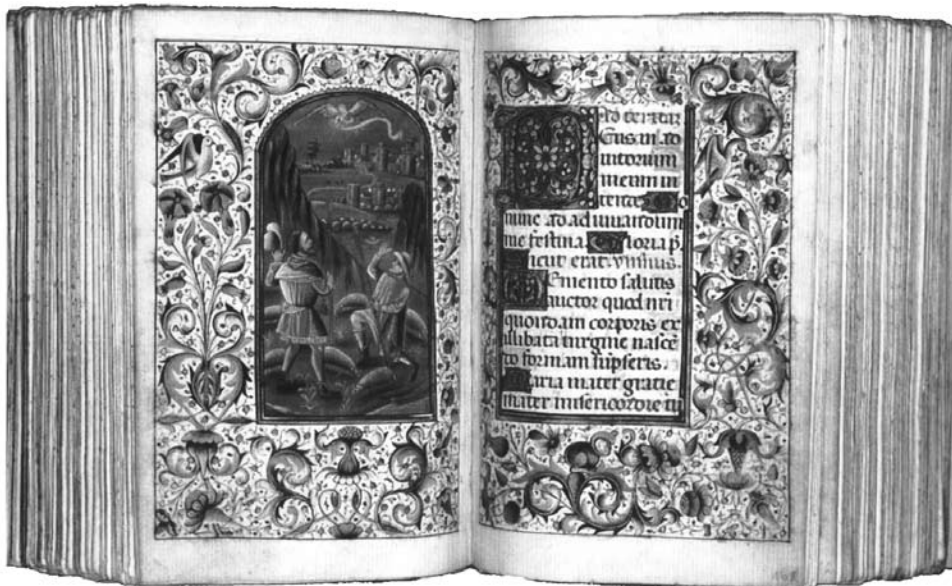 Ad tertiā
Deus in ad
iutorium
meum in
tende Do
mine ad adiuuandum
me festina. Gloria p̄.
Sicut erat. ympnus.
Memento salutis
auctor quod nr̄i
quondam corporis ex
illibata uirgine nascē
do formam sūpseris.
Maria mater gratie
mater misericordie tu